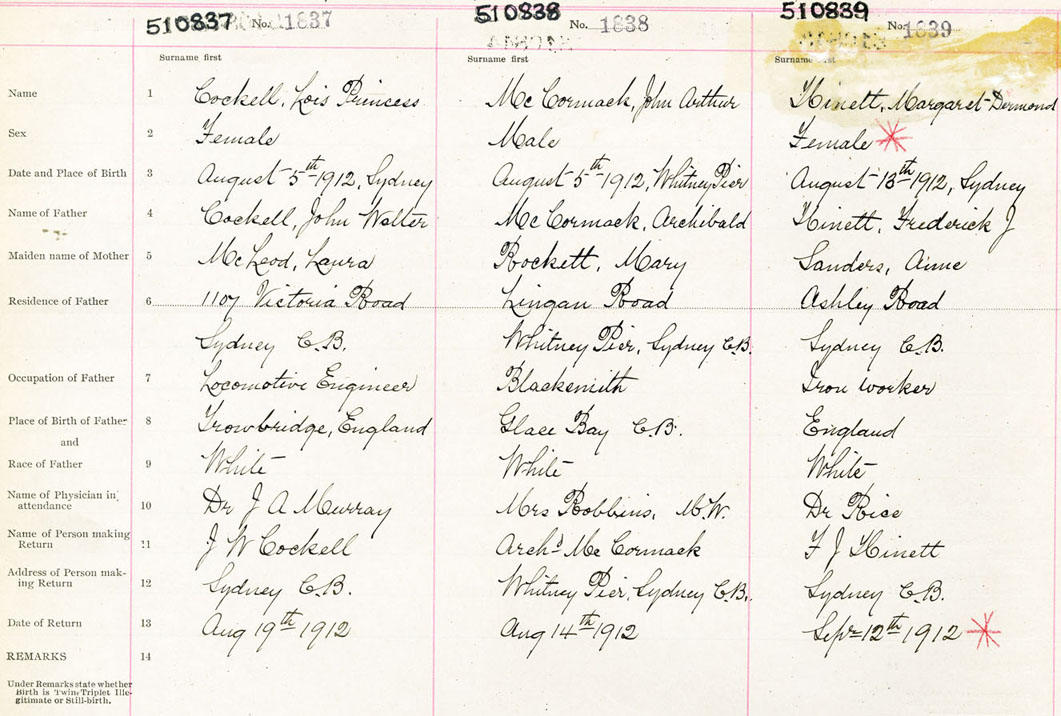 510837 No. 1837 510838 No. 1838 510839 No. 1839
Surname first Surname first Surname first
Name 1 Cockell, Lois Princess Mc Cormack, John Arthur Hinett, Margaret Dermond
Sex 2 Female Male Female
Date and Place of Birth 3 August 5th 1912, Sydney August 5th 1912, Whitney Pier August 13th 1912, Sydney
Name of Father 4 Cockell, John Walter Mc Cormack, Archibald Hinett, Frederick J
Maiden name of Mother 5 McLeod, Laura Rockett, Mary Sanders, Anne
Residence of Father 6 1107 Victoria Road Lingan Road Ashley Road
Sydney C.B. Whitney Pier, Sydney C.B. Sydney C.B.
Occupation of Father 7 Locomotive Engineer Blacksmith Iron worker
Place of Birth of Father 8 Trowbridge, England Glace Bay C.B. England
and
Race of Father 9 White White White
Name of Physician in attendance 10 Dr J A Murray Mrs Robbins, M.W. Dr Rice
Name of Person making Return 11 J W Cockell Archd Mc Cormack F J Hinett
Address of Person making Return 12 Sydney C.B. Whitney Pier, Sydney C.B. Sydney C.B.
Date of Return 13 Aug 19th 1912 Aug 14th 1912 Sept 12th 1912
REMARKS 14
Under Remarks state whether
Birth is Twin, Triplet Ille-
gitimate or Still-birth.